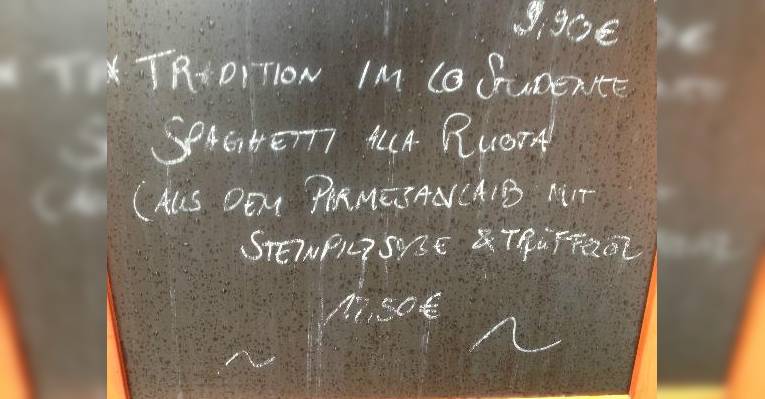 9,90€
* TRADITION IM LO STUDENTE
SPAGHETTI ALLA RUOTA
(AUS DEM PARMESANLAIB MIT
STEINPILZSOßE & TRÜFFELÖL
€